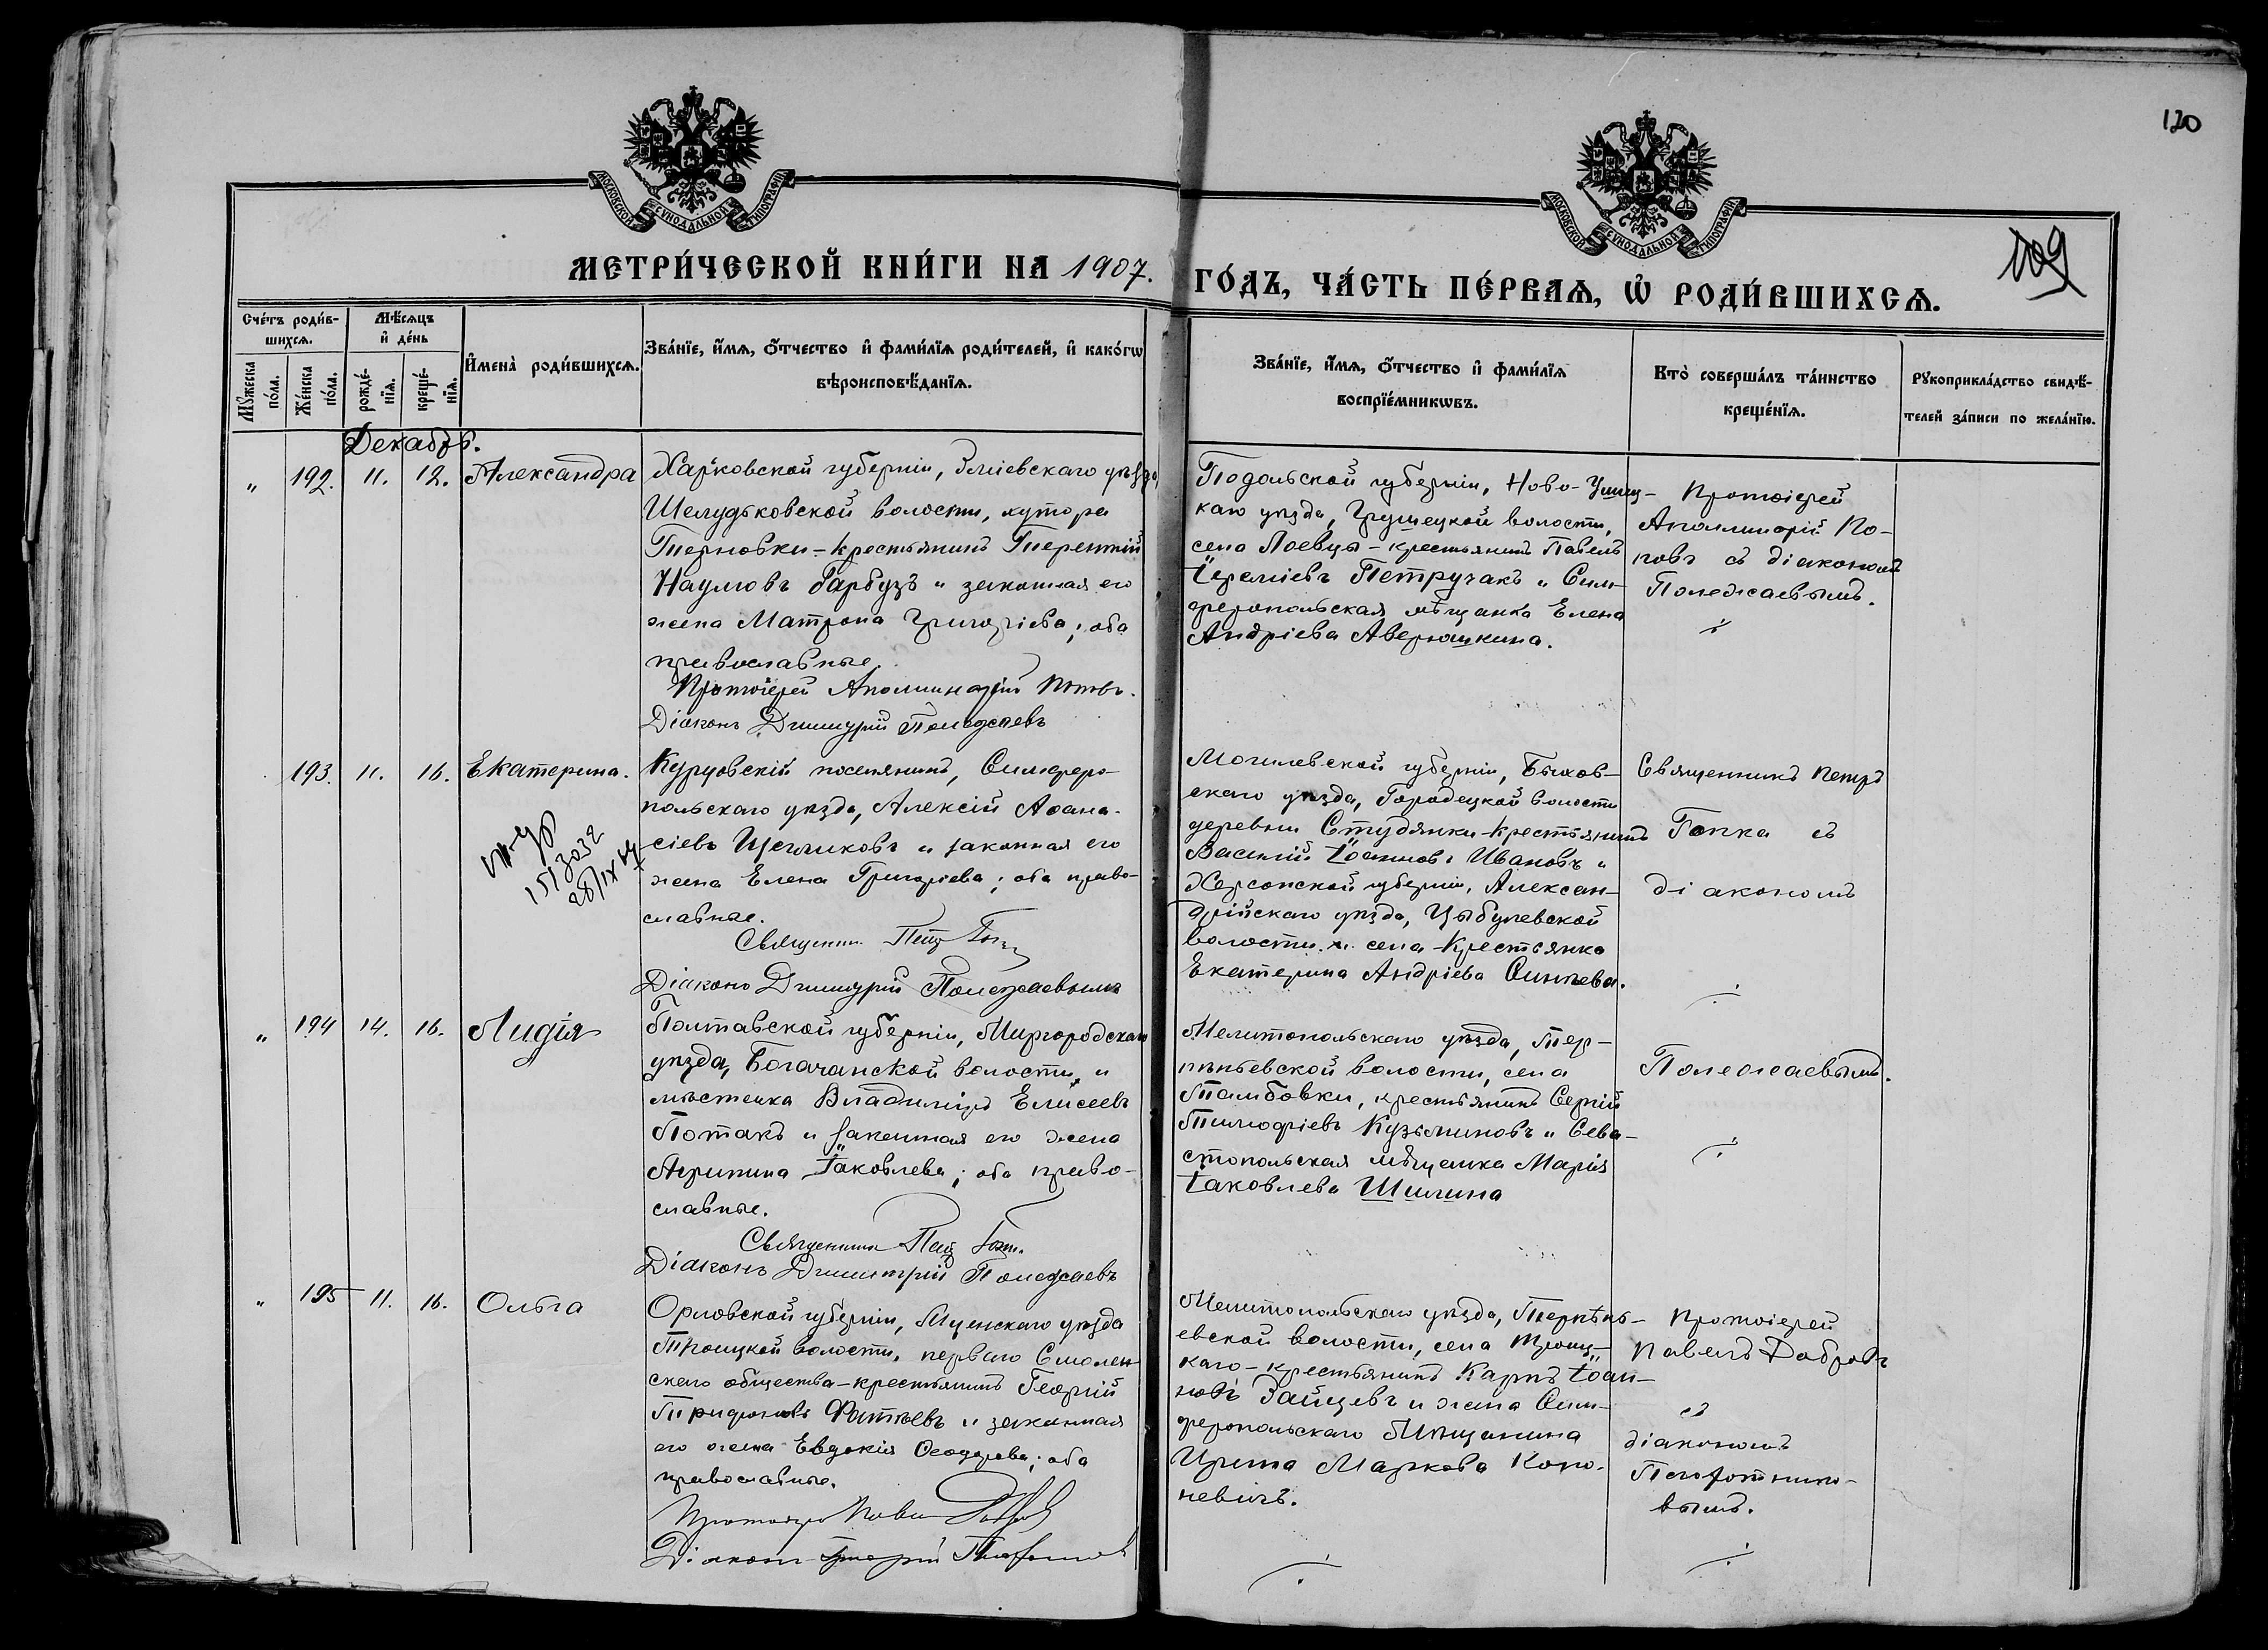 120
109
МОСКОВСКОЙ СѴНОДАЛЬНОЙ ТИПОГРАФІИ
МОСКОВСКОЙ СѴНОДАЛЬНОЙ ТИПОГРАФІИ
МЕТРИ́ЧЕСКОЙ КНИ́ГИ НА 1907.
ГО́ДЪ, ЧА́СТЬ ПЕ́РВАѦ, Ѡ҆ РОДИ́ВШИХСѦ.
Сче́тъ роди́в-
шихсѧ.
Мꙋ́жеска по́ла.
Же́нска по́ла.
Мѣ́сѧцъ
и҆ де́нь
рожде́-
нїѧ.
креще́-
нїѧ.
И҆мена̀ роди́вшихсѧ.
Зва́нїе, и҆́мѧ, ѻ҆́тчество и҆ фами́лїѧ роди́телей, и҆ како́гѡ
вѣроисповѣ́данїѧ.
Зва́нїе, и҆́мѧ, ѻ҆́тчество и҆ фами́лїѧ
воспрїе́мникѡвъ.
Кто̀ соверша́лъ та́инство
креще́нїѧ.
Рꙋкоприкла́дство свидѣ́-
телей за́писи по жела́нїю.
Декабрь.
" 192. 11. 12. Александра
Харьковской губерніи, Зміевскаго уѣзда,
Шелудьковской волости, хутора
Терновки – крестьянинъ Терентій
Наумовъ Гарбузъ и законная его
жена Матрона Григоріева; оба
православные.
Протоіерей Аполлинарій Поповъ.
Діаконъ Димитрій Полежаевъ
Подольской губерніи, Ново-Ушиц-
каго уѣзда, Грушецкой волости,
села Лоевцы – крестьянинъ Павелъ
Іереміевъ Петручакъ и Сим-
феропольская мѣщанка Елена
Андріева Аверюшкина.
Протоіерей
Аполлинарій По-
повъ съ діакономъ
Полежаевымъ.
193. 11. 16. Екатерина.
151 3032
28/IX
Курцовскій поселянинъ, Симферо-
польскаго уѣзда, Алексій Аѳана-
сіевъ Щегликовъ и законная его
жена Елена Григоріева; оба право-
славные.
Священникъ Петръ
Діаконъ Димитрій Полежаевымъ
Могилевской губерніи, Быхов-
скаго уѣзда, Городецкой волости
деревни Студянки – крестьянинъ
Василій Іоанновъ Ивановъ и
Херсонской губерніи, Алексан-
дрійскаго уѣзда, Цыбулевской
волости и села – крестьянка
Екатерина Андріева Синѣева.
Священникъ Петръ
Гопка съ
діакономъ
" 194 14. 16. Лидія
Полтавской губерніи, Миргородскаго
уѣзда, Богачанской волости и
мѣстечка Владиміръ Елисеевъ
Потакъ и законная его жена
Агрипина Іаковлева; оба право-
славные.
Священникъ Петръ
Діаконъ Димитрій Полежаевъ
Мелитопольскаго уѣзда, Тер-
пѣньевской волости, села
Тамбовки, крестьянинъ Сергій
Тимофіевъ Кузьминовъ и Сева-
стопольская мѣщанка Марія
Іаковлева Шилина
Полежаевымъ.
" 195 11. 16. Ольга
Орловской губерніи, Мценскаго уѣзда
Троицкой волости, перваго Смолен-
скаго общества – крестьянинъ Георгій
Трифоновъ Фатѣевъ и законная
его жена Евдокія Ѳеодорова; оба
православные.
Протоіерей Павелъ
Діаконъ
Мелитопольскаго уѣзда, Терпѣнь-
евской волости, села Троиц-
каго – крестьянинъ Карпъ Іоан-
новъ Зайцевъ и жена Сим-
феропольскаго мѣщанина
Ирина Маркова Коно-
невичъ.
Протоіерей
Павелъ Добровъ
съ
діакономъ
вымъ.